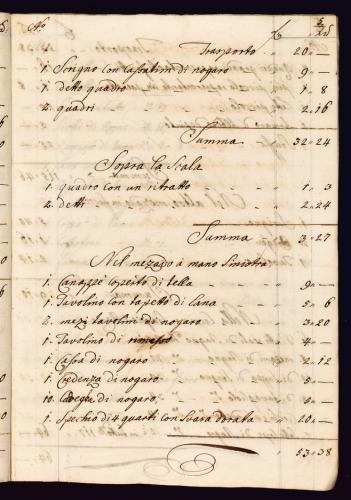 Trasporto 20 „ —
1. Scrigno con Cassettini di nogaro 9 „ —
1. detto quadro 1 „ 8
2. quadri 2 „ 16
Summa 32 „ 24
Sopra la Scala
1. quadro con un ritratto 1 „ 3
2. detti 2 „ 24
Summa 3 „ 27
Nel mezado à mano Sinistra
1. Canappè coperto di tella 9 „ —
1. Tavolino con tapetto di lana 5 „ 6
2. mezi tavolini di nogaro 3 „ 20
1. Tavolino di rimesso 4 „ —
1. Cassa di nogaro 2 „ 12
1. Credenza di nogaro 5 „ —
10. Careghe di nogaro 5 „ —
1. Spechio di 4 quarti con Soaza dorata 20 „ —
53 „ 38